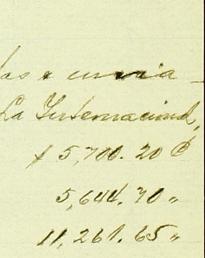 las e envia
La Internacional,
$ 5,700.20 ¢
5,644.70 "
11,261.65 "